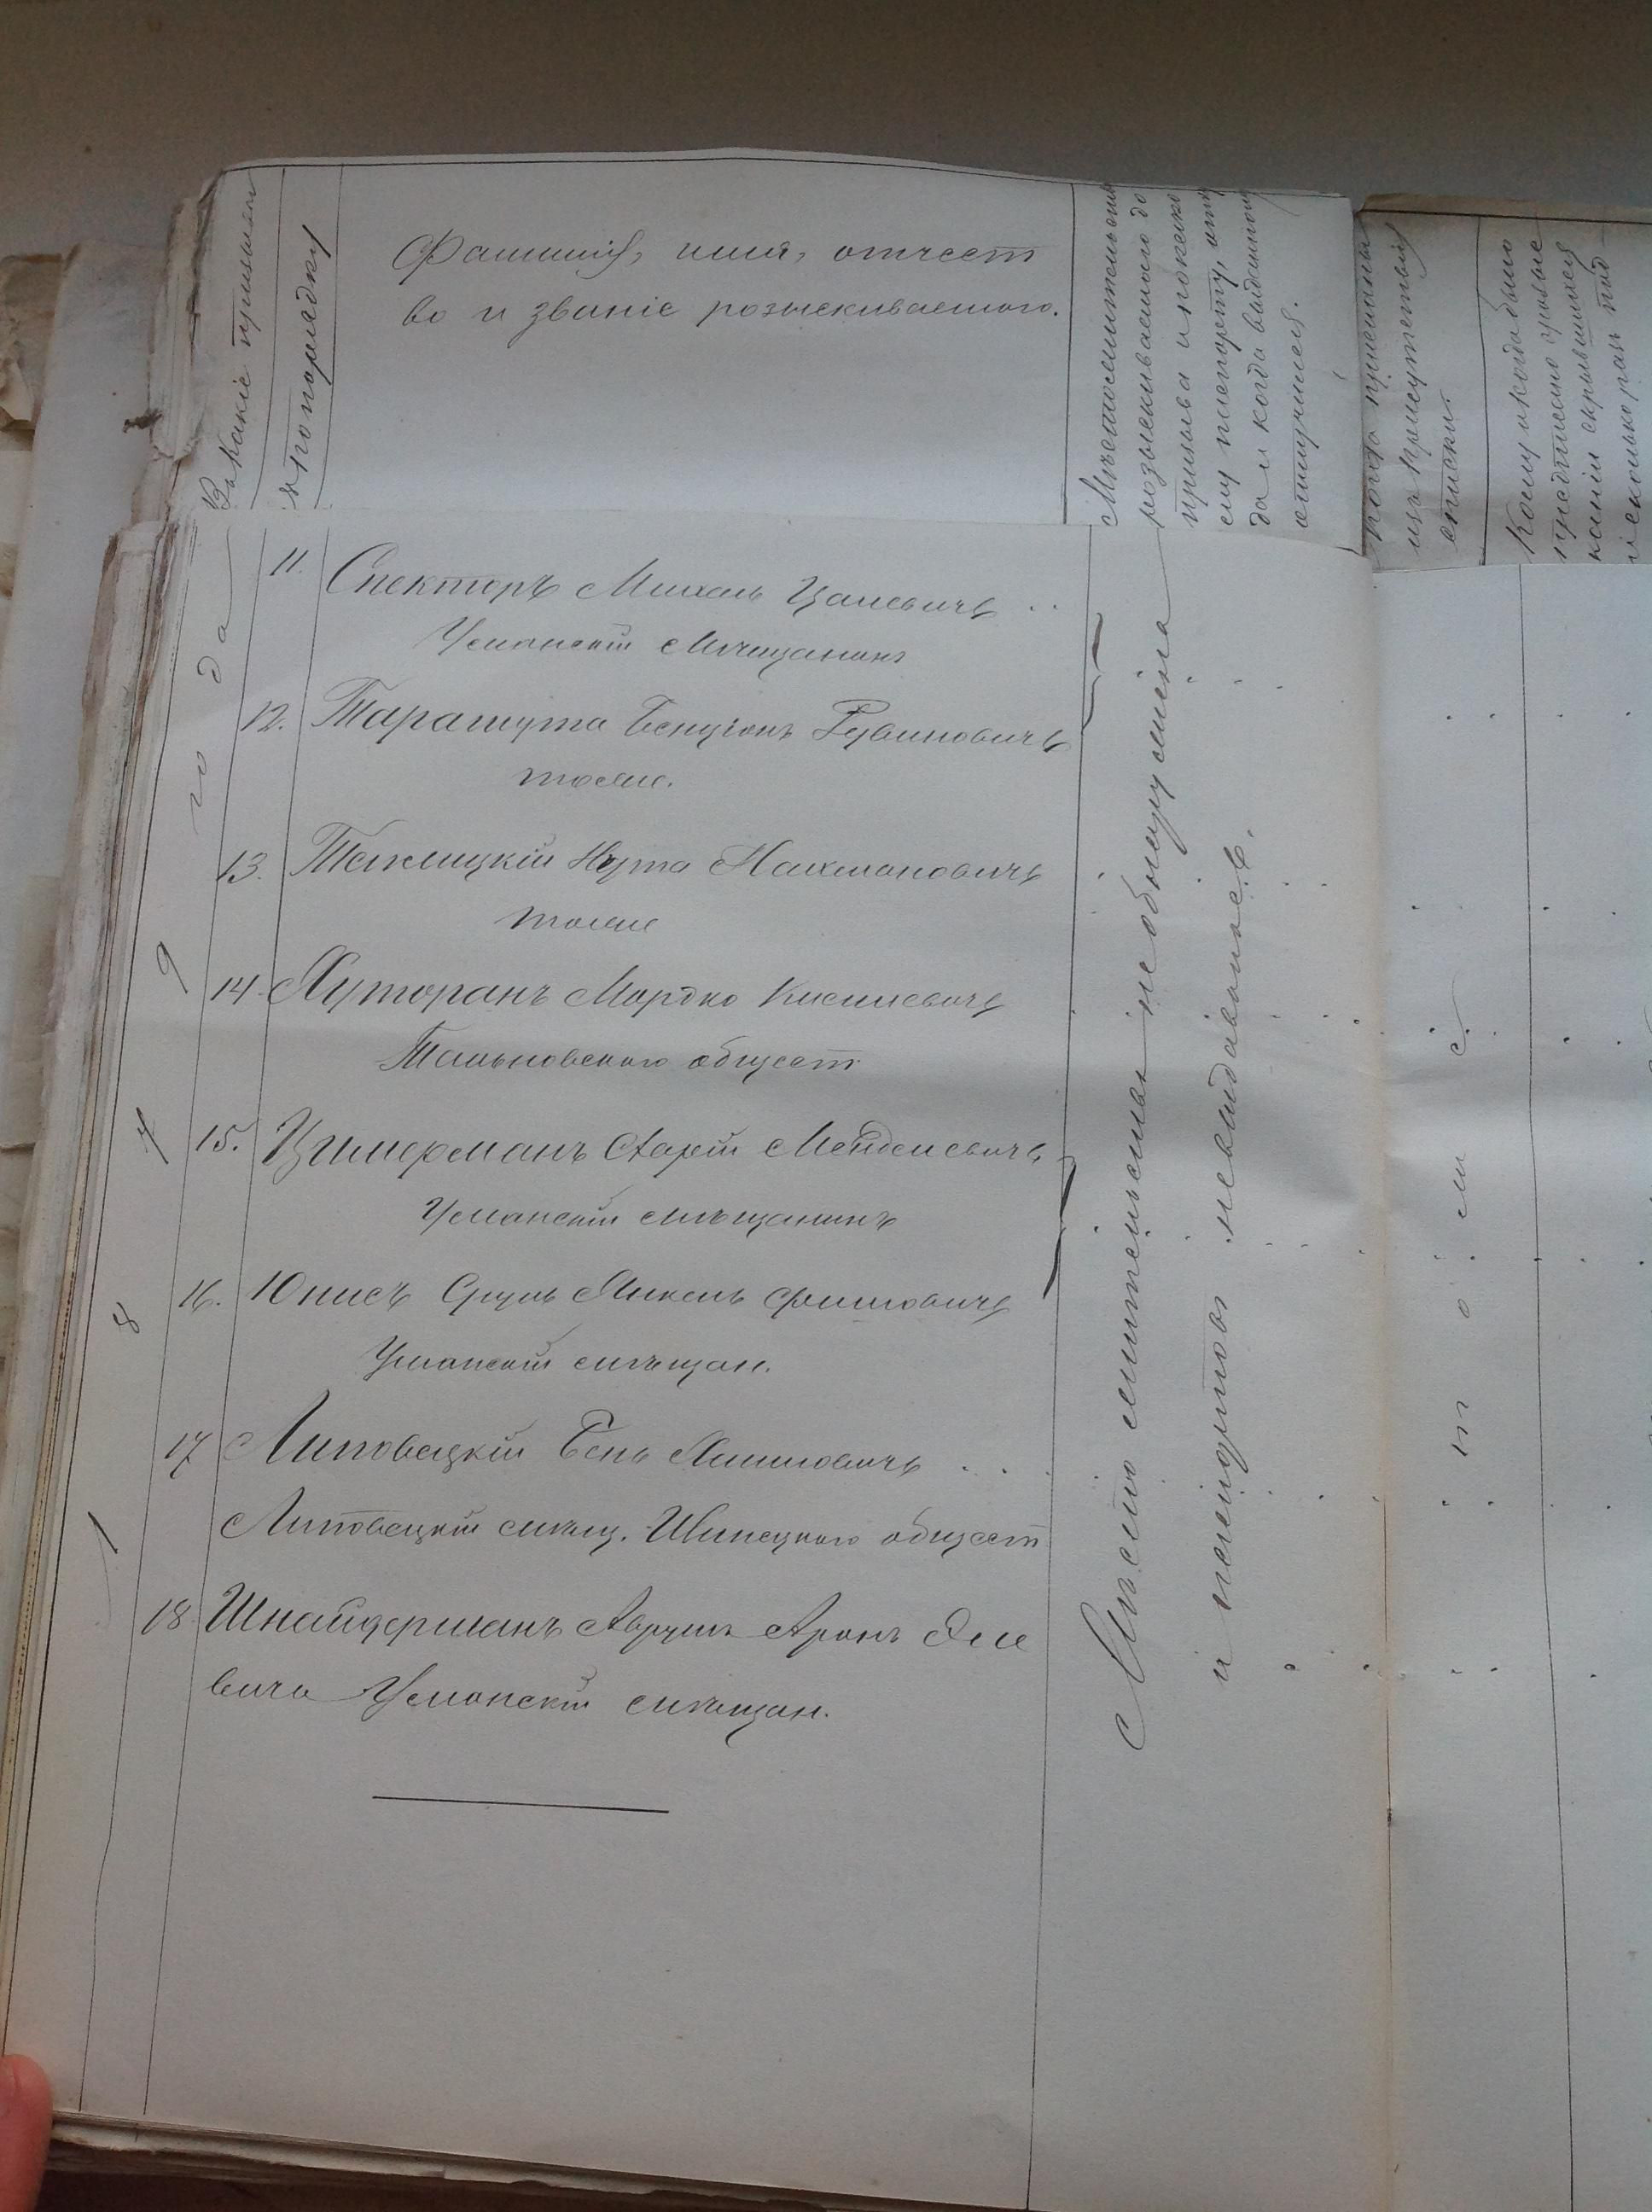 Въ какiе призывы
№ по порядку
Фамилiя, имя, отчест
во и званiе розыскиваемого.
Мѣстожительство
розыскиваемаго до
призыва и по како
му паспорту, отку
да и когда выданному
отлучился.
Когда
изъ присутствiя
списки.
Кому и когда было
предписано о розыс
канiи скрывшихся
и сколько разъ под
1 8 7 9 года
11. Спекторъ Михель Цалевичъ ..
Уманскiй мѣщанинъ
12. Таращута Бенцiонъ Рувиновичъ
тоже.
13. Теплицкiй Нута Нахмановичъ
тоже
14. Хуторанъ Мордко Кисилевичъ
Тальновскаго общест
15. Цимерманъ Хаскiй Менделевичъ
Уманскiй мѣщанинъ
16. Юнисъ Сруль Янкель Фроимовичъ
Уманскiй мѣщан.
17 Липовецкiй Бень Хаимовичъ ...
Липовецкiй мѣщ. Илинецкого общест
18 Шнайдерманъ Аврумъ Аронъ Эле
вичъ Уманскiй мѣщан.
Мѣсто жительства не обнаружено
и паспортовъ не выдавалось.
п о м с